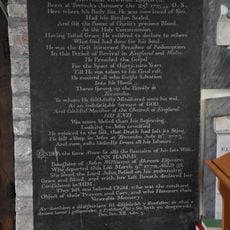 Born at Trevecka January the 23d 1713/4 O.S.
Here where his Body lies, He was convinced of Sin,
Had his Pardon Sealed,
And felt the Power of Christ's precious Blood,
At the Holy Communion.
Having Tasted Grace He resolved to declare to others
What God had done for his Soul.
He was the first itinerant Preacher of Redemption
In this Period of Revival in England and Wales.
He Preached the Gospel
For the Space of thirty-nine Years,
Till He was taken to his final Rest.
He received all who sought Salvation
There sprung up the Family at
Trevecka,
To whom He faithfully Ministered unto his end,
As an indefatigable Servant of GOD,
And faithful Member of the Church of England.
HIS END
Was more blessed than his Beginning.
Looking to Jesus crucified
He rejoiced to the last, that Death had lost its Sting.
He fell a Sleep in Jesus at Trevecka July 21 1773,
And now rests blessedly from all his labours.
Under the same Stone lie also the Remains of his late Wife
ANN HARRIS
Daughter of John Williams of Skreen Esquire,
Who departed this Life March 9th 1770, Aged 58.
She loved the Lord Jesus, Relied on his redeeming
Grace and Blood, and with her last Breath declared her
Confidence in HIM.
They left one beloved Child, who was the constant
Object of their Prayers and Care, and who Honours their
Venerable Memory.
Dan. Xii. XII. Adn. 3.